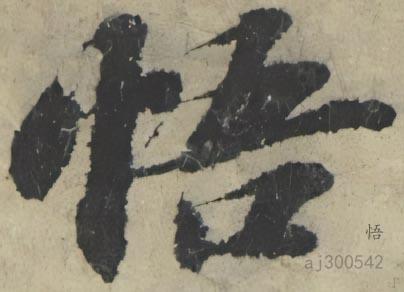 悟
悟
© aj300542